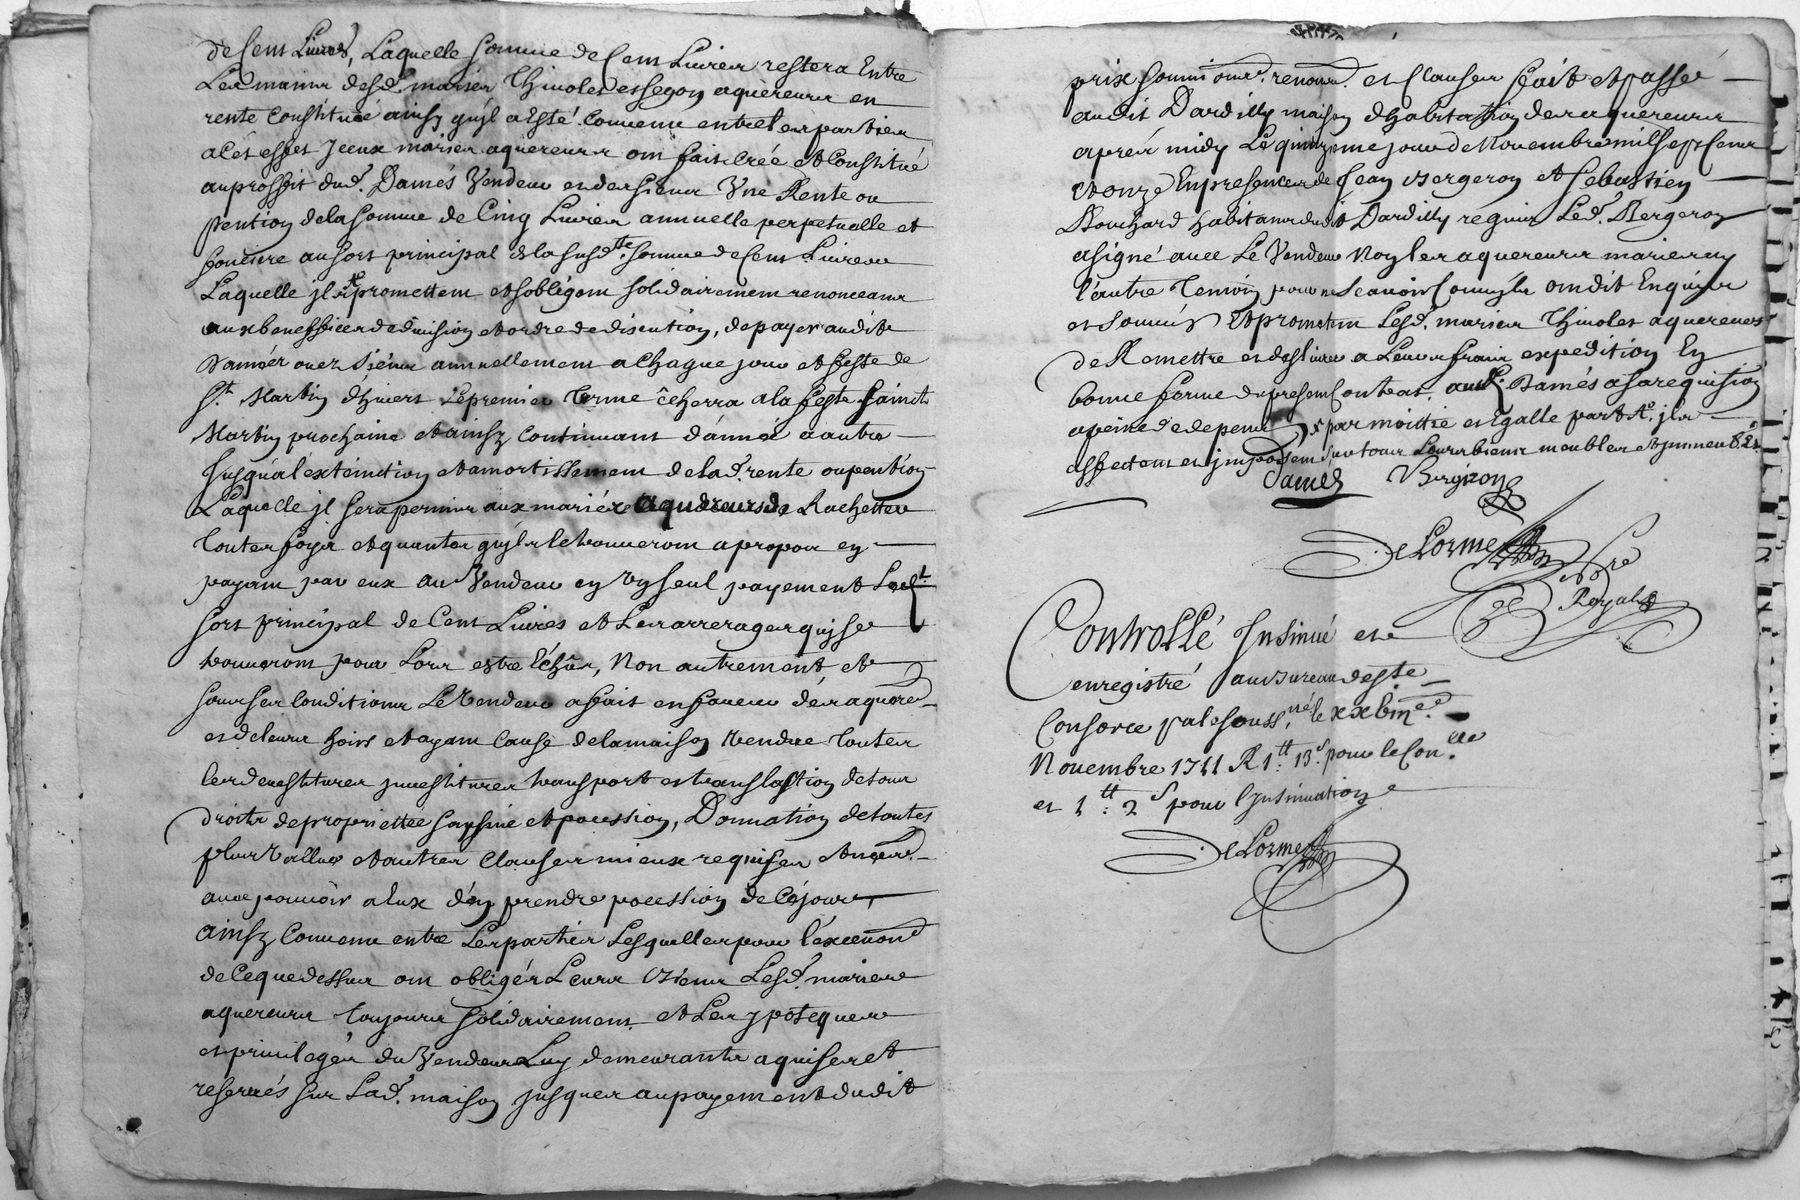 de Cent Livres, Laquelle somme de Cent Livres restera Entre
Les mains desd. mariez Thivolet essegon aquereurs en
rente Constituée ainsy quyl a Esté Convenu entre les parties
a Cet effet Jceux mariez aquereurs ont fait Créé et Constitué
au proffit dud. Damés Vendeur et des siens Vne Rente ou
pention de la somme de Cinq Livres annuelle perpetuelle et
fonciere au sort principal de la susd.te somme de Cent Livres
Laquelle jls promettent et sobligent solidairement renonceant
aux beneffices de division et ordre de discution, de payer audit
Damés ou ez siens annuellement a Chaque jour et feste de
St. Martin dhivert Le premier terme écherra a la feste saint
Martin prochaine et ainsy Continuant dannée a autre
Jusqua lextinction et amortissement de lad. rente ou pention
Laquelle jl sera permis aux mariés aquereurs de Rachetter
toutes foys et quantes quyls le trouveront a propos en
payant par eux au Vendeur en vn seul payement Led.t
sort principal de Cent Livres et Les arrerages quy se
trouveront pour Lors estre Échus, Non autrement, et
sous ses Conditions Le Vendeur a fait en faveur des aquere.
et de leurs hoirs et ayant Cause de la maison Vendue toutes
les devestitures jnvestitures transport et translation de tous
droits de propriettée saysine et pocession, Donnation de toutes
plus Vallue et autres Clauses mieux requises et necess.
avec pouvoir a Eux d'en prendre pocession de Cejour,
ainsy Convenu entre Les parties Lesquelles pour lexecution
de Ce que dessus ont obligés Leurs Biens Lesd. mariez
aquereurs toujours solidairement et Les ypoteques
et privileges du Vendeur Luy demeurants aquis et
reservés sur Lad. maison jusques au payement dudit
prix soumi ons. renons. et Clauses fait et passé
audit Dardilly maison dhabitation des aquereurs
aprés midy Le quinzieme jour de Novembre mil sept Cent
et onze En presence de Jean Bergeron et Sebastien
Bouchard habitants dudit Dardilly requis Led. Bergeron
a signé avec Le Vendeur Non les aquereurs mariez ny
l'autre temoin pour ne scavoir Comm'ils ont dit Enquis
et sommés Et promettent Lesd. mariez Thivolet aquereurs
de Remettre et deslivrer a Leurs frais expedition En
bonne forme du present Contrat, aud. Damés a sa requisition
a peine de depens par moittié et Egalle part Et. jls
affectent et jmposent sur tous Leurs biens meubles et jmmeubles
Damés Bergeron
DeLorme
Nore
Royal
Controllé Jnsinué et
enregistré au bureau deste
Novembre 1711 R 1tt 13s pour le Con.lle
et 1tt 2s pour l'Jnsinuation
DeLorme